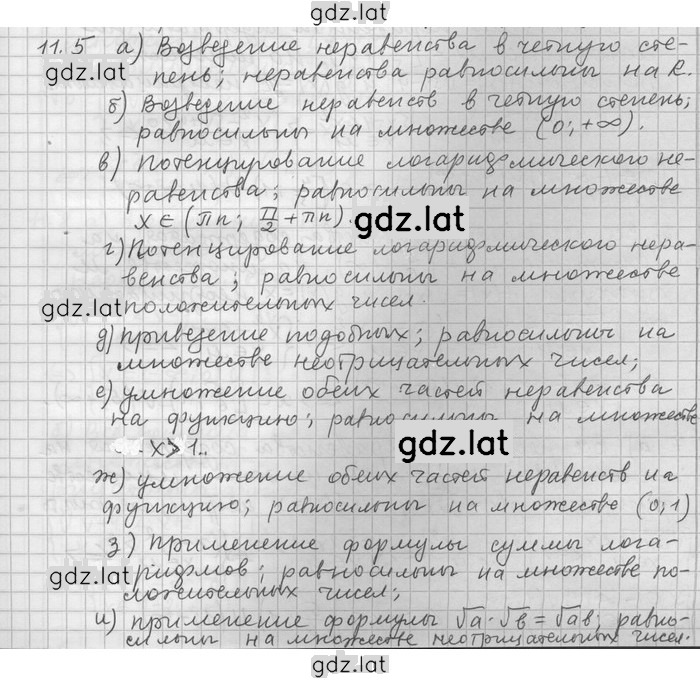 gdz.lat
11.5 а) Возведение неравенства в четную сте-
gdz.lat
пень; неравенства равносильны на R.
б) Возведение неравенств в четную степень;
равносильны на множестве (0; +∞).
в) потенцирование логарифмического не-
равенства; равносильны на множестве
x ∈ (πn; π/2 + πn).
gdz.lat
г) Потенцирование логарифмического нера-
венства; равносильны на множестве
gdz.lat
положительных чисел.
д) приведение подобных; равносильны на
множестве неотрицательных чисел;
е) умножение обеих частей неравенства
на функцию; равносильны на множестве
gdz.lat
x > 1.
ж) умножение обеих частей неравенств на
функцию; равносильны на множестве (0; 1)
з) применение формулы суммы лога-
gdz.lat
рифмов; равносильны на множестве по-
ложительных чисел;
и) применение формулы √a·√в = √aв; равно-
сильны на множестве неотрицательных чисел.
gdz.lat